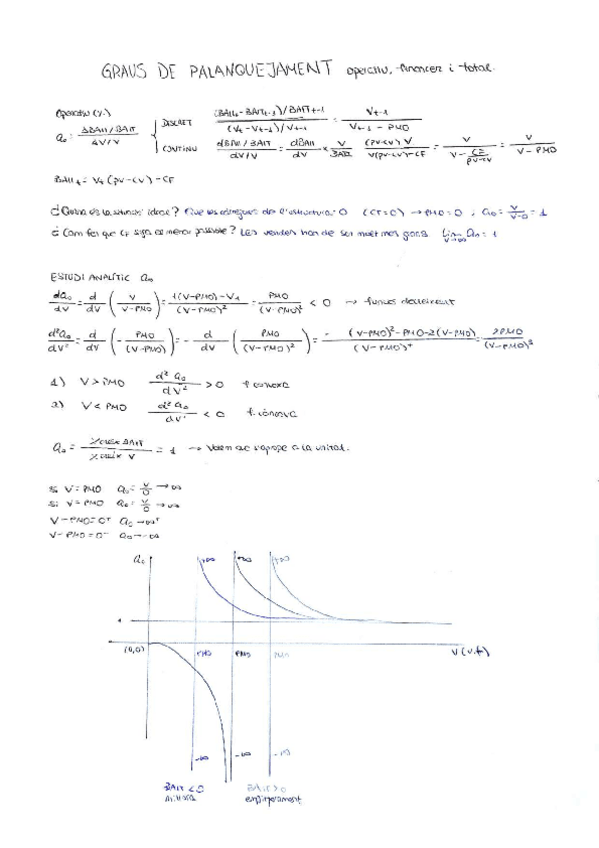 GRAUS DE PALANQUEJAMENT operatiu, financer i total.
Operatiu (y.)
a₀ = (ΔBAIT/BAIT)/(ΔV/V) { DISCRET ((BAITt - BAITt-1)/BAITt-1)/((Vt - Vt-1)/Vt-1) = Vt-1/(Vt-1 - PMO)
CONTINU (dBAIT/BAIT)/(dV/V) = dBAIT/dV × V/BAIT = (pv-cv) V/(V(pv-cv)-CF) = V/(V - CF/(pv-cv)) = V/(V-PMO)
BAITt = Vt (pv-cv) - CF
¿Quina és la situació ideal? Que les càrregues de l'estructura: 0 (CF=0) → PMO=0, a₀ = V/(V-0) = 1
¿Com fer que CF sigui el menor possible? Les vendes han de ser molt més grans lim V→∞ a₀ = 1
ESTUDI ANALÍTIC a₀
da₀/dV = d/dV (V/(V-PMO)) = (1(V-PMO)-V1)/(V-PMO)² = PMO/(V-PMO)² < 0 → funció decreixent
d²a₀/dV² = d/dV (-PMO/(V-PMO)) = - d/dV (PMO/(V-PMO)²) = - ((V-PMO)²-PMO·2(V-PMO))/(V-PMO)⁴ = 2PMO/(V-PMO)³
1) V > PMO d²a₀/dV² > 0 f. convexa
2) V < PMO d²a₀/dV² < 0 f. còncava
a₀ = % creix BAIT/% creix V = 1 → Volem que s'apropi a la unitat.
si V = PMO a₀ = V/0 → ∞
si V = PMO a₀ = V/0 → ∞
V-PMO = 0⁺ a₀ → ∞⁺
V-PMO = 0⁻ a₀ → -∞
a₀ +∞ +∞ +∞
(0,0) PMO PMO PMO V (v.f)
-∞ -∞ -∞
BAIT < 0 BAIT > 0
millora empitjorament